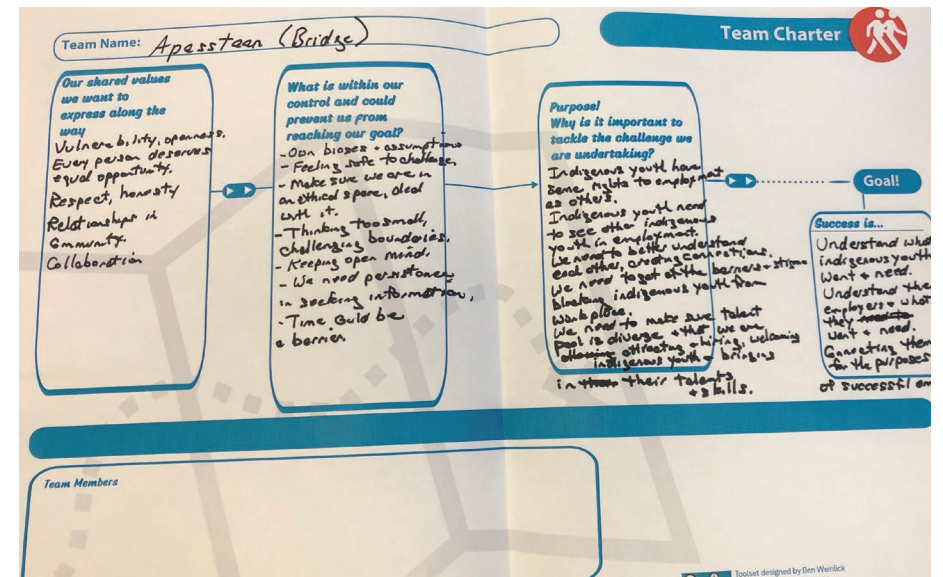 Team Name: Apasstaan (Bridge)
Team Charter
Our shared values
we want to
express along the
way
Vulnerability, openness.
Every person deserves
equal opportunity.
Respect, honesty
Relationships in
Community.
Collaboration
What is within our
control and could
prevent us from
reaching our goal?
- Own biases + assumptions
- Feeling safe to challenge,
- Make sure we are in
an ethical space, deal
with it.
- Thinking too small,
challenging boundaries.
- Keeping open mind.
- We need persistance
in seeking information,
- Time could be
a barrier.
Purpose!
Why is it important to
tackle the challenge we
are undertaking?
Indigenous youth have
same rights to employment
as others.
Indigenous youth need
to see other indigenous
youth in employment.
We need to better understand
each other, creating connections.
We need to get at the barriers + stigma
blocking indigenous youth from
workplace.
We need to make sure talent
pool is diverse + that we are
attracting + hiring, welcoming
indigenous youth + bringing
in their talents
+ skills.
Goal!
Success is...
Understand what
indigenous youth
want + need.
Understand the
employers + what
they
want + need.
Connecting them
for the purposes
of successful em
Team Members
Toolset designed by Ben Weinlick